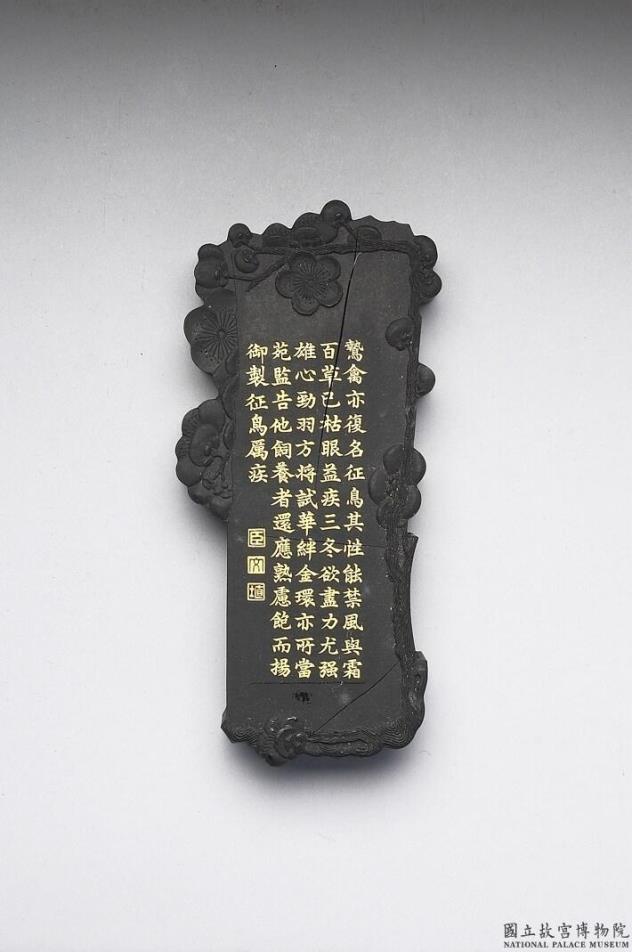 鷙禽亦復名征鳥其性能禁風與霜
百草已枯眼益疾三冬欲盡力尤强
雄心勁羽方将試華絆金環亦所當
苑監告他飼養者還應熟慮飽而揚
御製征鳥厲疾
臣
國立故宮博物院
NATIONAL PALACE MUSEUM